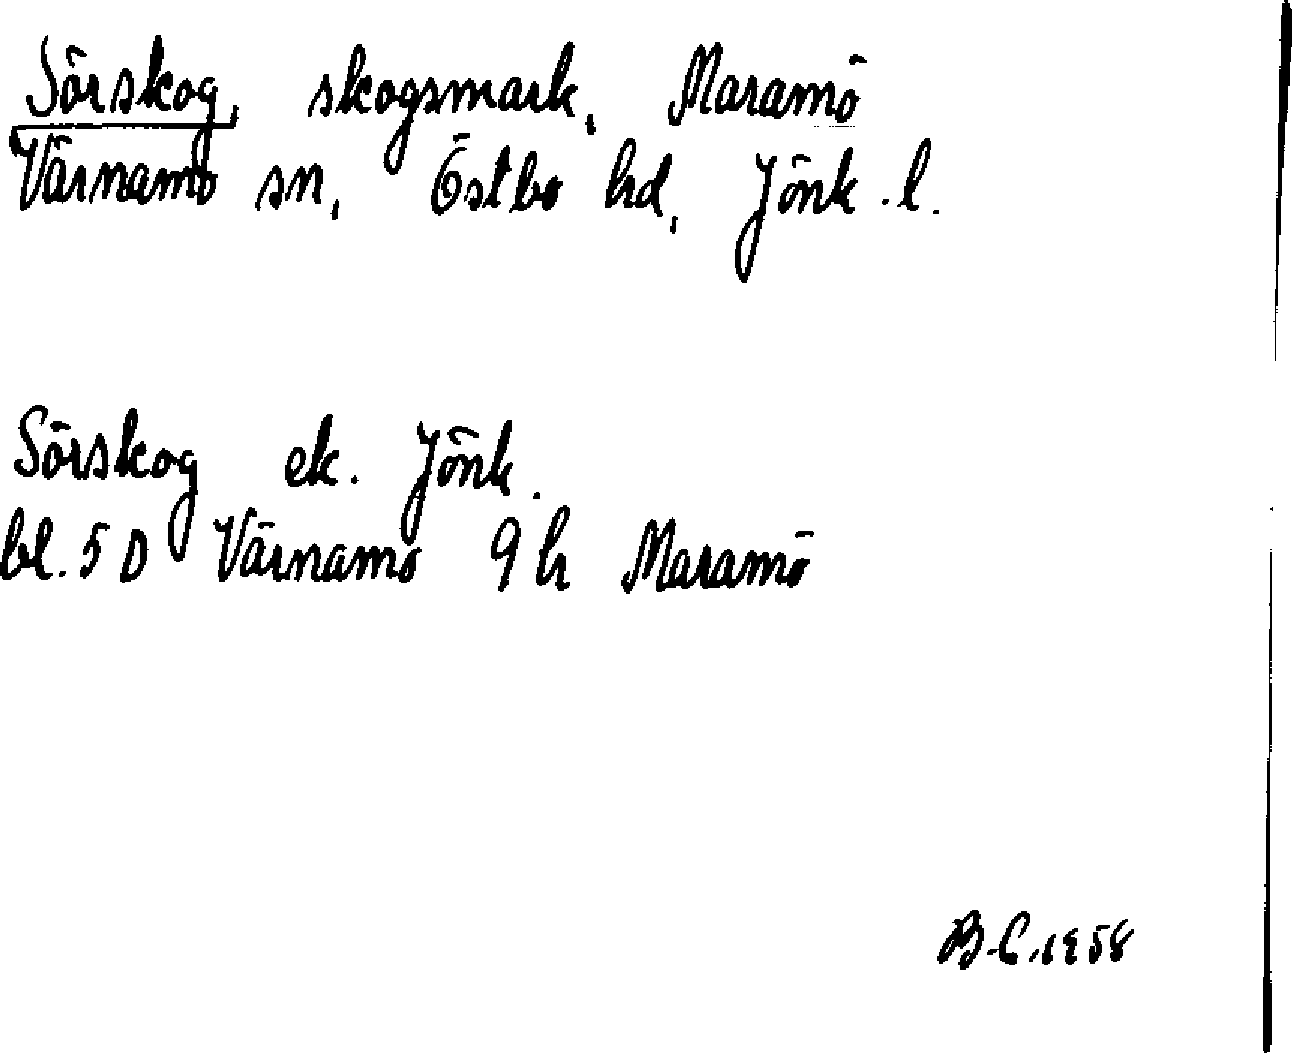 Sörskog, skogsmark, Maramö
Värnamo sn, Östbo hd, Jönk.l.
Sörskog ek. Jönk.
bl. 5 D Värnamo 9 h Maramö
B-C. 1958